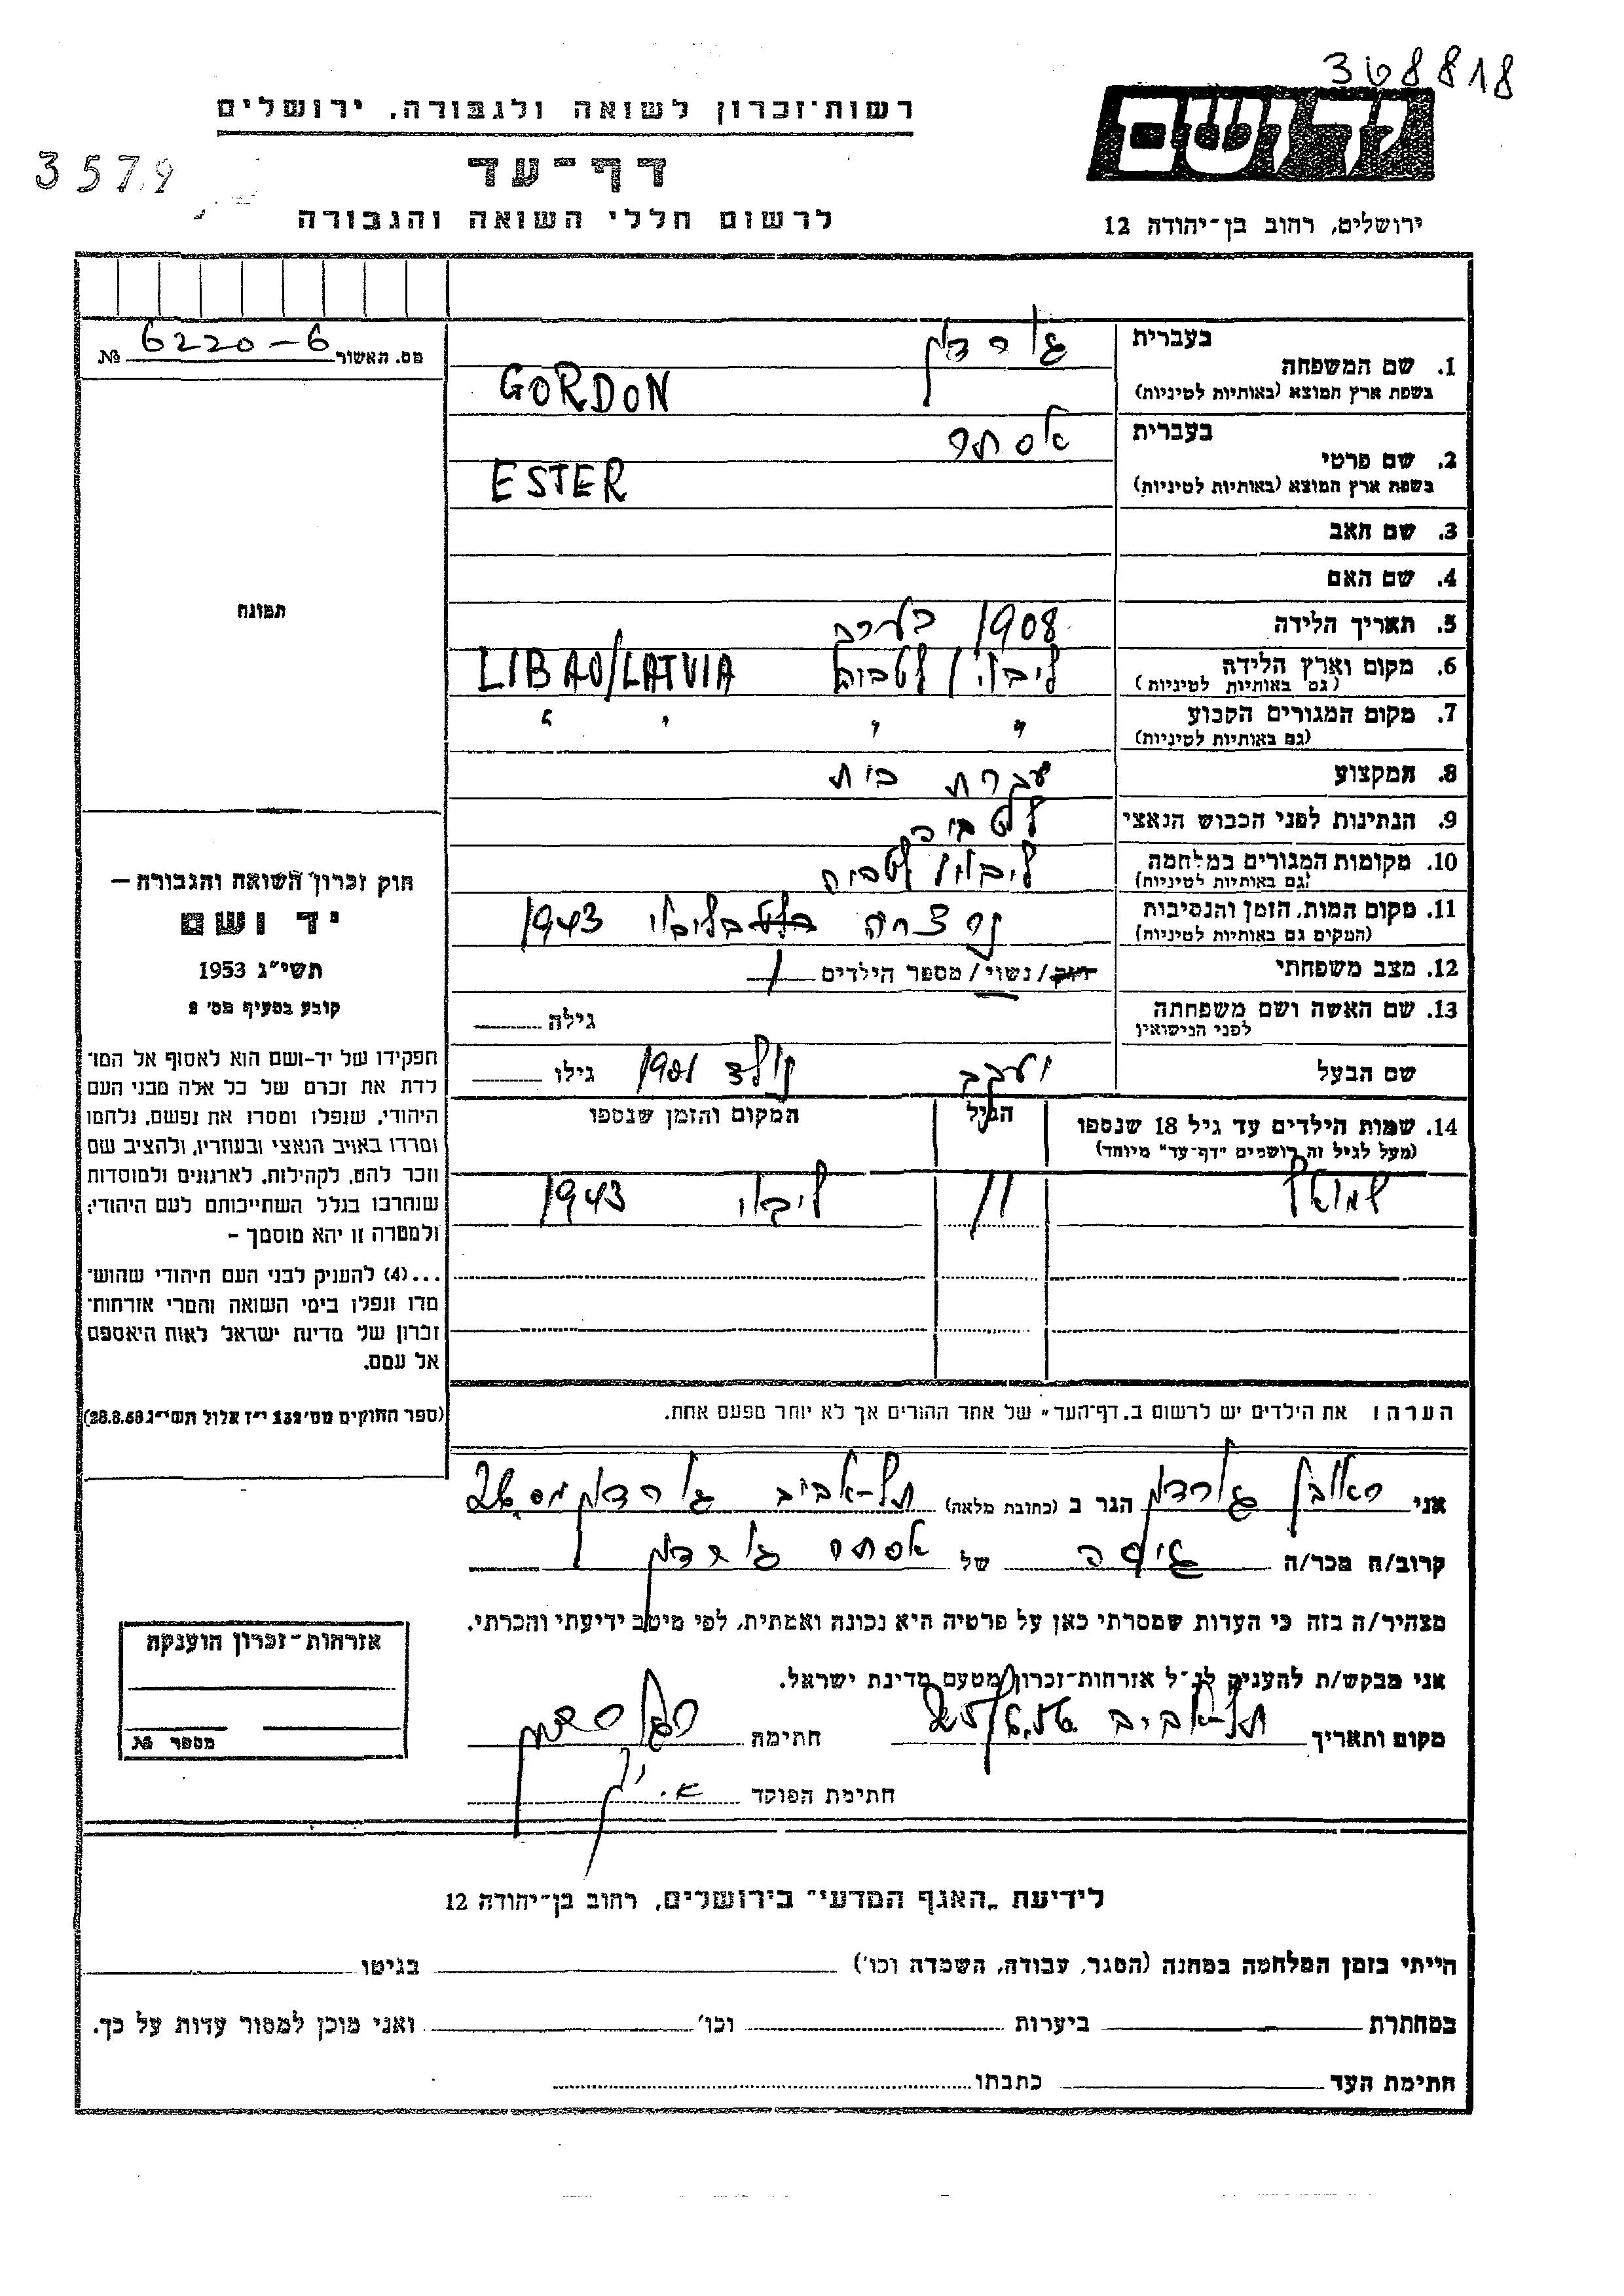 368818
רשות־זכרון לשואה ולגבורה, ירושלים
יד ושם
3579
דף־עד
לרשום חללי השואה והגבורה
ירושלים, רחוב בן־יהודה 12
מס. האשור № 6220-6
בעברית גורדון
1. שם המשפחה
בשפת ארץ המוצא (באותיות לטיניות) GORDON
בעברית אסתר
2. שם פרטי
בשפת ארץ המוצא (באותיות לטיניות) ESTER
3. שם האב
4. שם האם
תמונה
5. תאריך הלידה 1908 בערב
6. מקום וארץ הלידה ליבאו / לטביה LIBAU/LATVIA
(גם באותיות לטיניות)
7. מקום המגורים הקבוע " " " "
(גם באותיות לטיניות)
8. המקצוע עקרת בית
9. הנתינות לפני הכבוש הנאצי לטביה
10. מקומות המגורים במלחמה ליבאו לטביה
(גם באותיות לטיניות)
11. מקום המות, הזמן והנסיבות נרצחה בליבאו 1943
(המקום גם באותיות לטיניות)
12. מצב משפחתי רווק / נשוי / מספר הילדים 1
13. שם האשה ושם משפחתה גילה
לפני הנישואין
שם הבעל יעקב נולד 1901 גילו
14. שמות הילדים עד גיל 18 שנספו הגיל המקום והזמן שנספו
(מעל לגיל זה רושמים "דף־עד" מיוחד)
שמואל 11 ליבאו 1943
חוק זכרון השואה והגבורה —
יד ושם
תשי״ג 1953
קובע בסעיף מס׳ 2
תפקידו של יד-ושם הוא לאסוף אל המו־
לדת את זכרם של כל אלה מבני העם
היהודי, שנפלו ומסרו את נפשם, נלחמו
ומרדו באויב הנאצי ובעוזריו, ולהציב שם
וזכר להם, לקהילות, לארגונים ולמוסדות
שנחרבו בגלל השתייכותם לעם היהודי;
ולמטרה זו יהא מוסמך -
...(4) להעניק לבני העם היהודי שהוש־
מדו ונפלו בימי השואה והמרי אזרחות־
זכרון של מדינת ישראל לאות היאספם
אל עמם.
(ספר החוקים מס׳ 132 י״ז אלול תשי״ג 28.8.53)
הערה: את הילדים יש לרשום ב„דף־העד״ של אחד ההורים אך לא יותר מפעם אחת.
אני ראובן גורדון הגר ב (כתובת מלאה) תל-אביב גורדון מס. 26
קרוב/ה מכר/ה גיסה של אסתר גורדון
מצהיר/ה בזה כי העדות שמסרתי כאן על פרטיה היא נכונה ואמתית, לפי מיטב ידיעתי והכרתי.
אני מבקש/ת להעניק לנ״ל אזרחות־זכרון מטעם מדינת ישראל.
מקום ותאריך תל-אביב חתימה ר. גורדון
חתימת הפוקד
אזרחות־זכרון הוענקה
מספר №
לידיעת „האגף המדעי״ בירושלים, רחוב בן־יהודה 12
הייתי בזמן המלחמה במחנה (הסגר, עבודה, השמדה וכו׳) בגיטו
במחתרת ביערות וכו׳ ואני מוכן למסור עדות על כך.
חתימת העד כתבתו